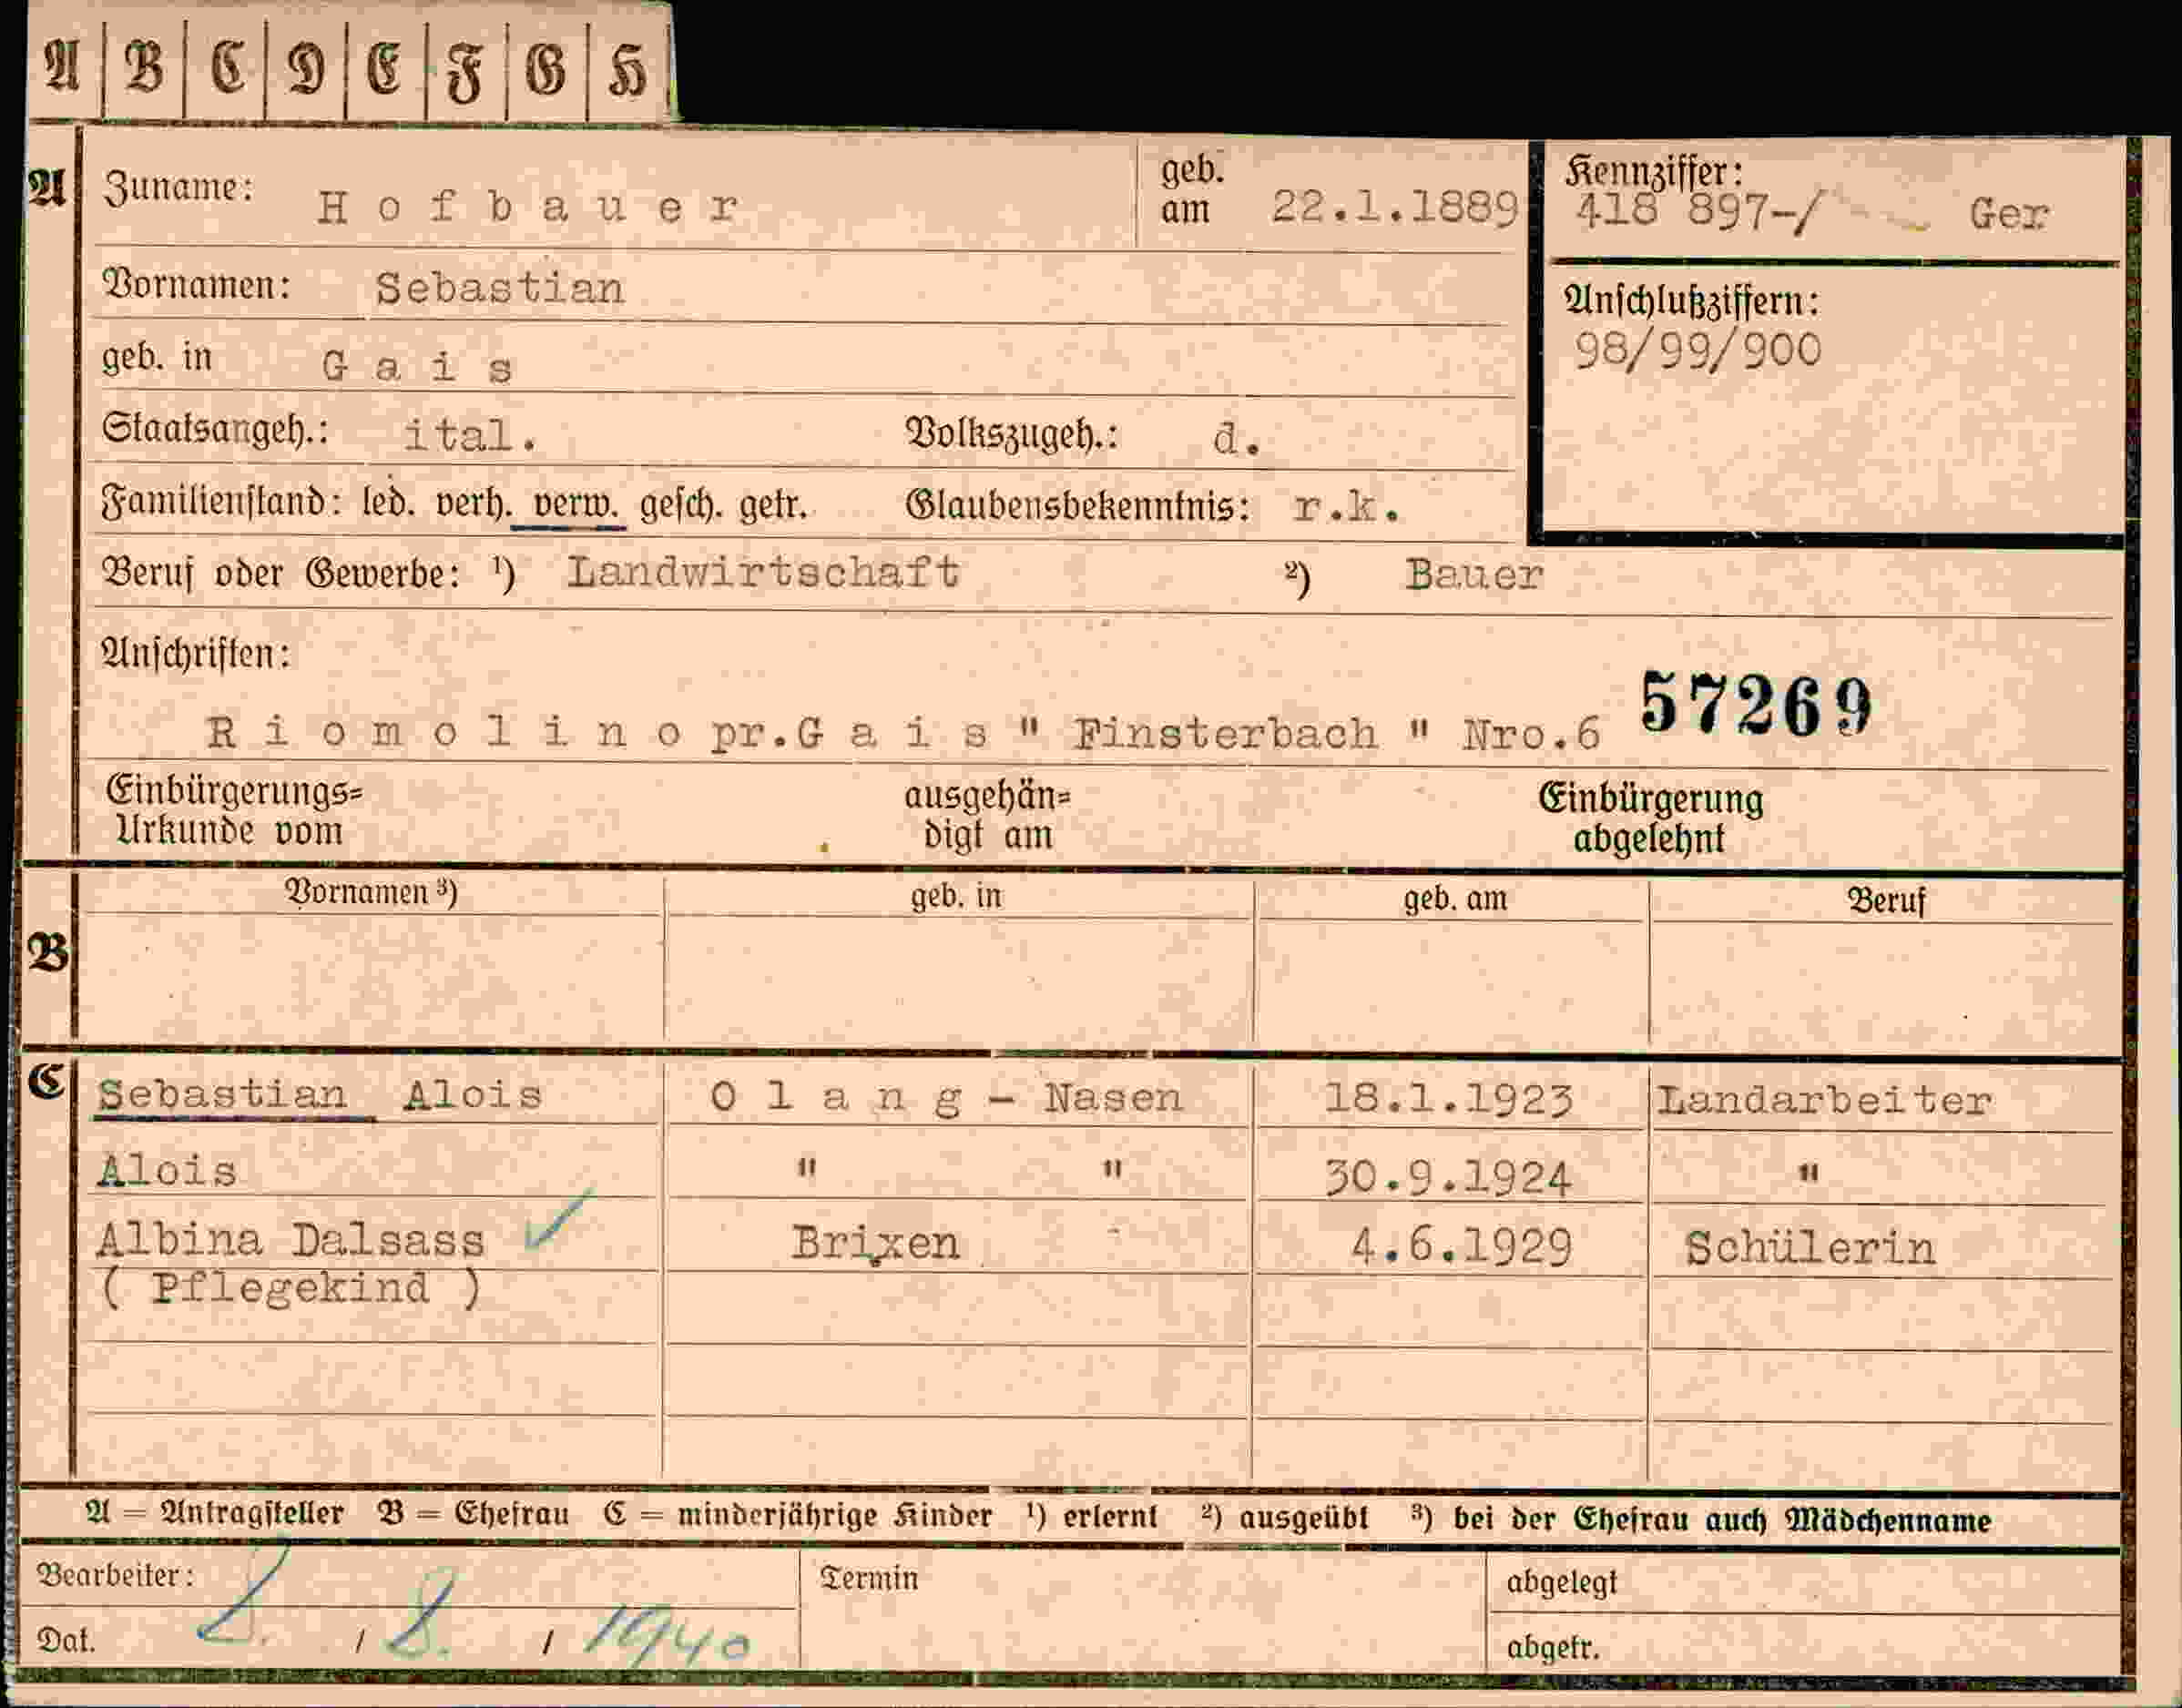 A B C D E F G H
A Zuname: Hofbauer geb. am 22.1.1889 Kennziffer: 418 897-/ Ger
Vornamen: Sebastian
Anschlußziffern:
98/99/900
geb. in Gais
Staatsangeh.: ital. Volkszugeh.: d.
Familienstand: led. verh. verw. gesch. getr. Glaubensbekenntnis: r.k.
Beruf oder Gewerbe: ¹) Landwirtschaft ²) Bauer
Anschriften:
57269
Riomolino pr.Gais " Finsterbach " Nro.6
Einbürgerungs=
Urkunde vom
ausgehän=
digt am
Einbürgerung
abgelehnt
B Vornamen ³) geb. in geb. am Beruf
C Sebastian Alois Olang - Nasen 18.1.1923 Landarbeiter
Alois " " 30.9.1924 "
Albina Dalsass ✓ Brixen 4.6.1929 Schülerin
( Pflegekind )
A = Antragsteller B = Ehefrau C = minderjährige Kinder ¹) erlernt ²) ausgeübt ³) bei der Ehefrau auch Mädchenname
Bearbeiter: Termin abgelegt
Dat. 8. / 8. / 1940 abgetr.